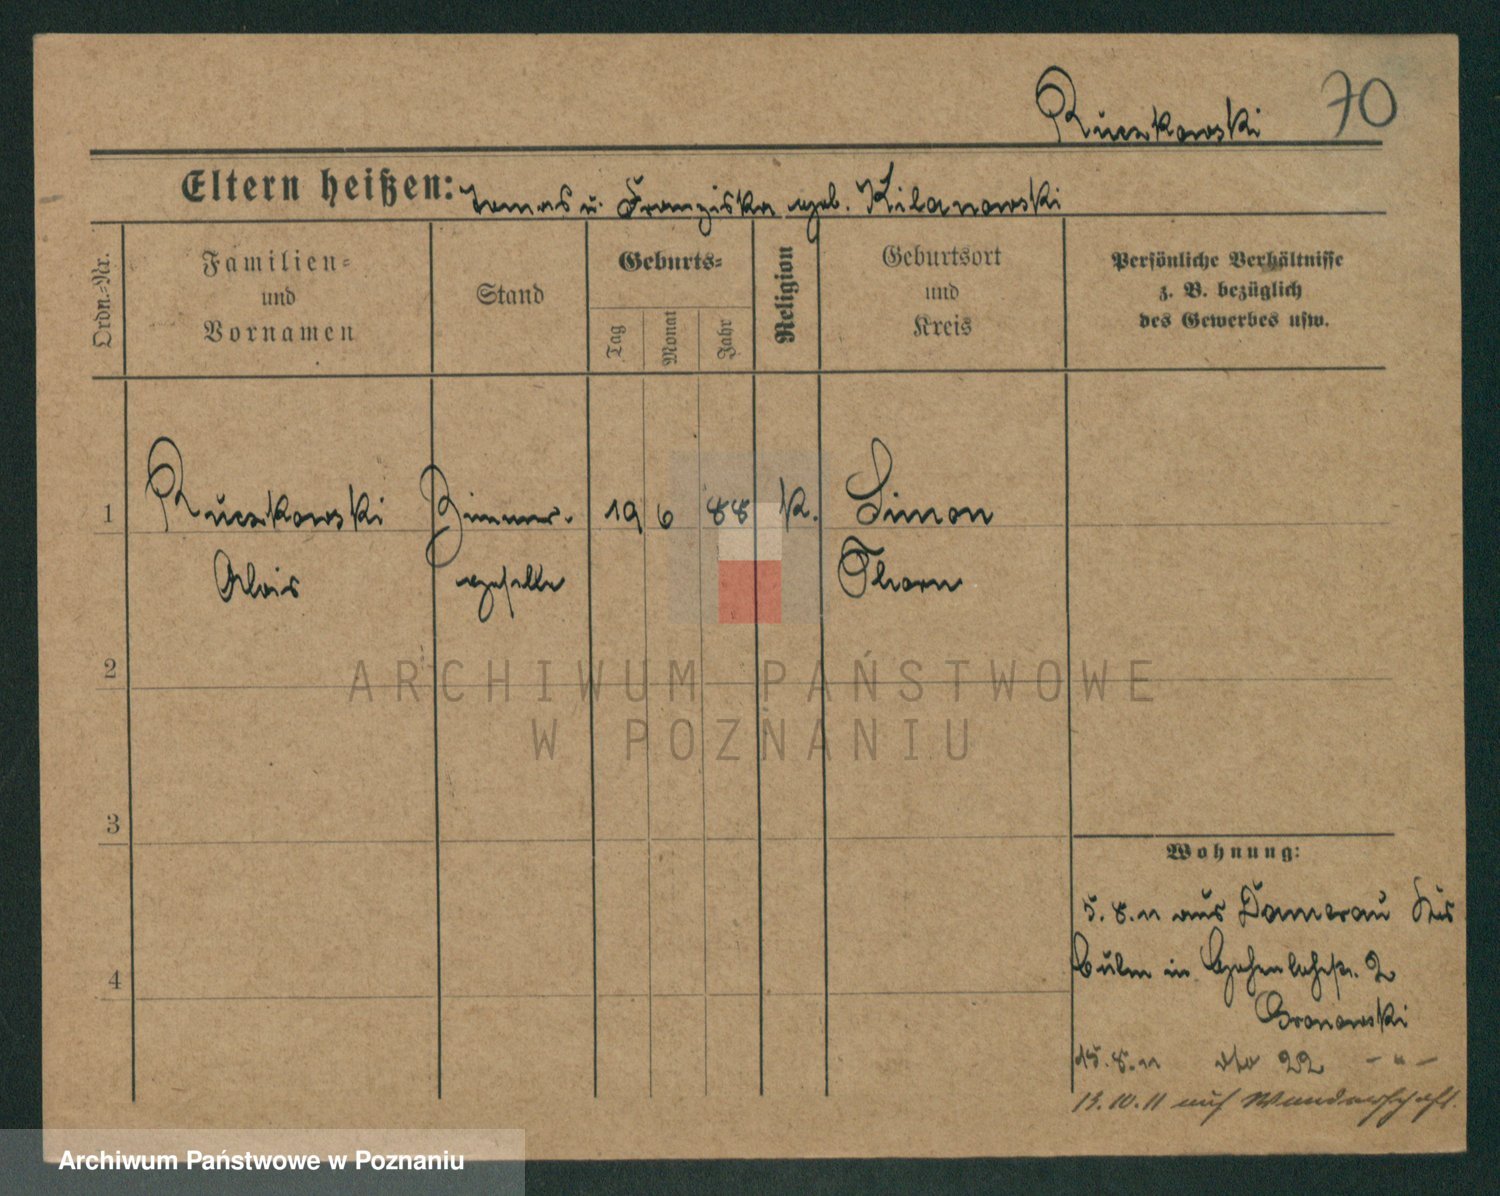 Ruczkowski 70
Eltern heißen: Tomas u. Franziska geb. Kilanowski
Ordn.-Nr.
Familien-
und
Vornamen
Stand
Geburts-
Tag
Monat
Jahr
Religion
Geburtsort
und
Kreis
Persönliche Verhältnisse
z. B. bezüglich
des Gewerbes usw.
1 Ruczkowski Zimmer- 19 6 88 K. Simon
Alois geselle Thorn
2
ARCHIWUM PAŃSTWOWE
W POZNANIU
3
Wohnung:
5. 8. 11 aus Damerau Kreis
4
Culm in Hohenlohestr. 2
Gronowski
15. 8. 11 dto 22 - " -
13. 10. 11 auf Wanderschaft.
Archiwum Państwowe w Poznaniu